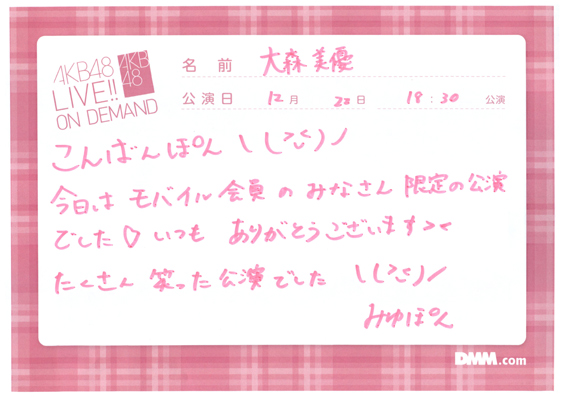 AKB48
LIVE!!
ON DEMAND
AKB
48
名前 大森美優
公演日 12月 20日 18:30 公演
こんばんぽん \(^o^)/
今日は モバイル会員の みなさん 限定の公演
でした♡ いつも ありがとうございます><
たくさん 笑った公演でした \(^o^)/
みゆぽん
DMM.com